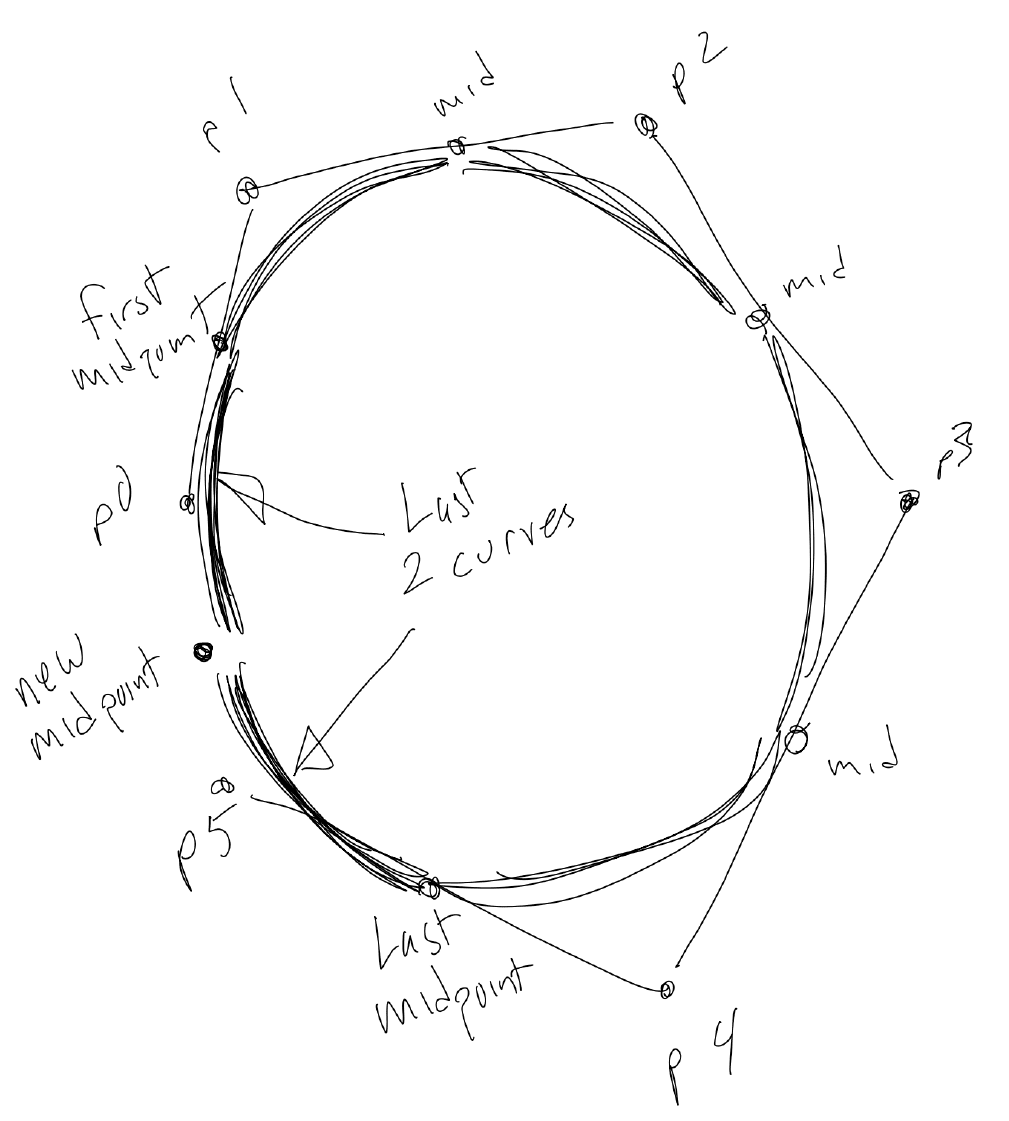 p1
mid
p2
first
midpoint
mid
p3
p0
Last
2 curves
new
midpoint
mid
p5
Last
midpoint
p4